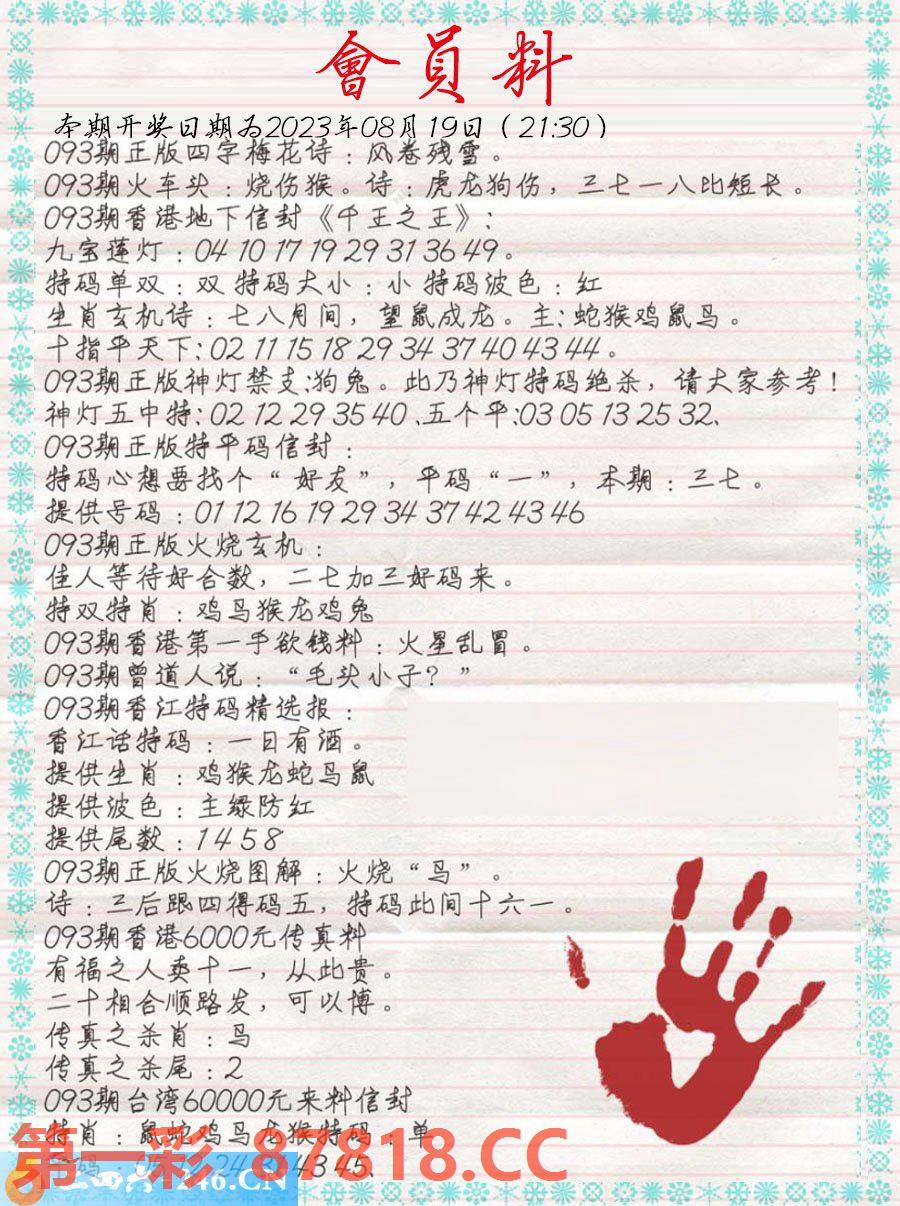 會員料
本期开奖日期为2023年08月19日（21:30）
093期正版四字梅花诗：风卷残雪。
093期火车头：烧伤猴。诗：虎龙狗伤，三七一八比短长。
093期香港地下信封《千王之王》：
九宝莲灯：04 10 17 19 29 31 36 49。
特码单双：双 特码大小：小 特码波色：红
生肖玄机诗：七八月间，望鼠成龙。主：蛇猴鸡鼠马。
十指平天下：02 11 15 18 29 34 37 40 43 44。
093期正版神灯禁支:狗兔。此乃神灯特码绝杀，请大家参考！
神灯五中特：02 12 29 35 40、五个平:03 05 13 25 32、
093期正版特平码信封：
特码心想要找个“好友”，平码“一”，本期：三七。
提供号码：01 12 16 19 29 34 37 42 43 46
093期正版火烧玄机：
佳人等待好合数，二七加三好码来。
特双特肖：鸡马猴龙鸡兔
093期香港第一手欲钱料：火星乱冒。
093期曾道人说：“毛头小子？”
093期香江特码精选报：
香江话特码：一日有酒。
提供生肖：鸡猴龙蛇马鼠
提供波色：主绿防红
提供尾数：1 4 5 8
093期正版火烧图解：火烧“马”。
诗：三后跟四得码五，特码此间十六一。
093期香港6000元传真料
有福之人卖十一，从此贵。
二十相合顺路发，可以博。
传真之杀肖：马
传真之杀尾：2
093期台湾60000元来料信封
特肖：鼠蛇鸡马龙猴特码：单
第一彩 87818.CC
246.CN
24 3 43 45、